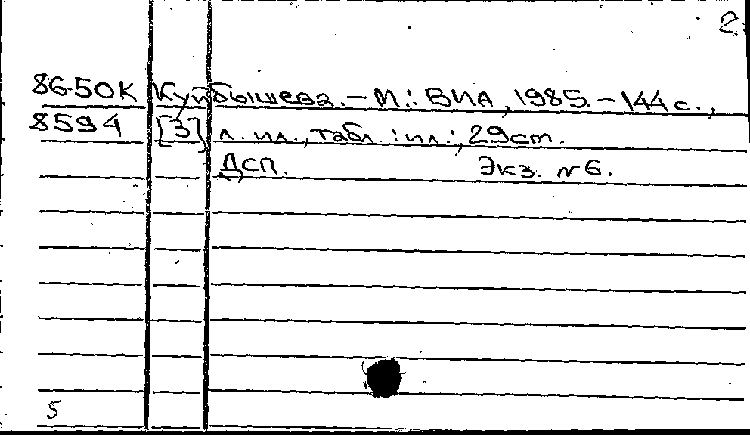 2.
86-50К Куйбышева. – М.: ВИА, 1985. – 144 с.,
8594 [3] л. ил., табл. : ил.; 29 cm.
ДСП. Экз. №6.
5